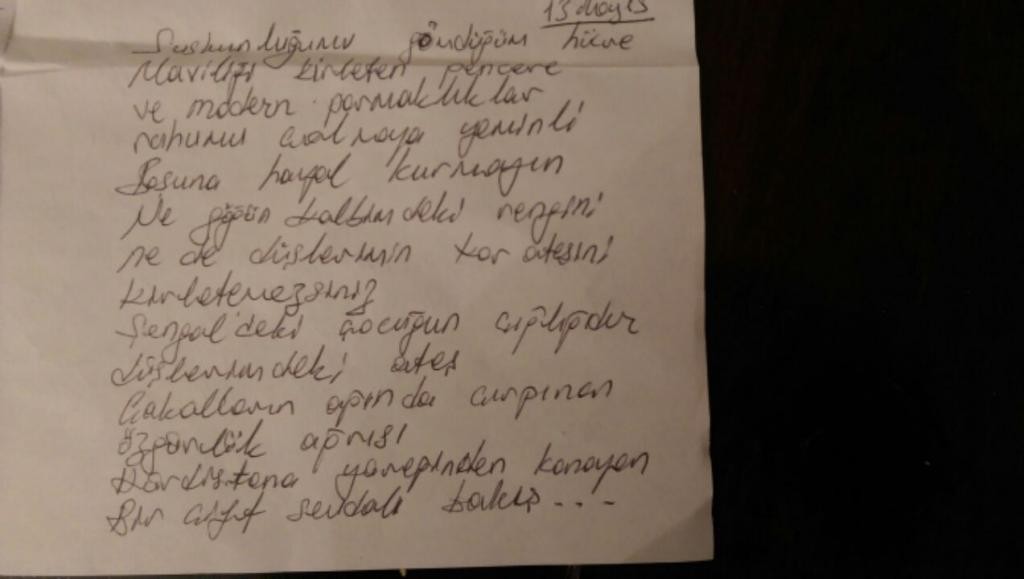 13 Mayıs
Suskunluğumu gömdüğüm hücre
Maviliği kirleten pencere
ve modern parmaklıklar
ruhumu çalmaya yeminli
Boşuna hayal kurmayın
Ne göğün kalbimdeki rengini
ne de düşlerimin kor ateşini
kirletemezsiniz
Şengal'deki çocuğun çığlığıdır
düşlerimdeki ateş
Çakalların ağında çırpınan
özgürlük ağrısı
Kürdistana yüreğinden kanayan
Bir çift sevdalı bakış....